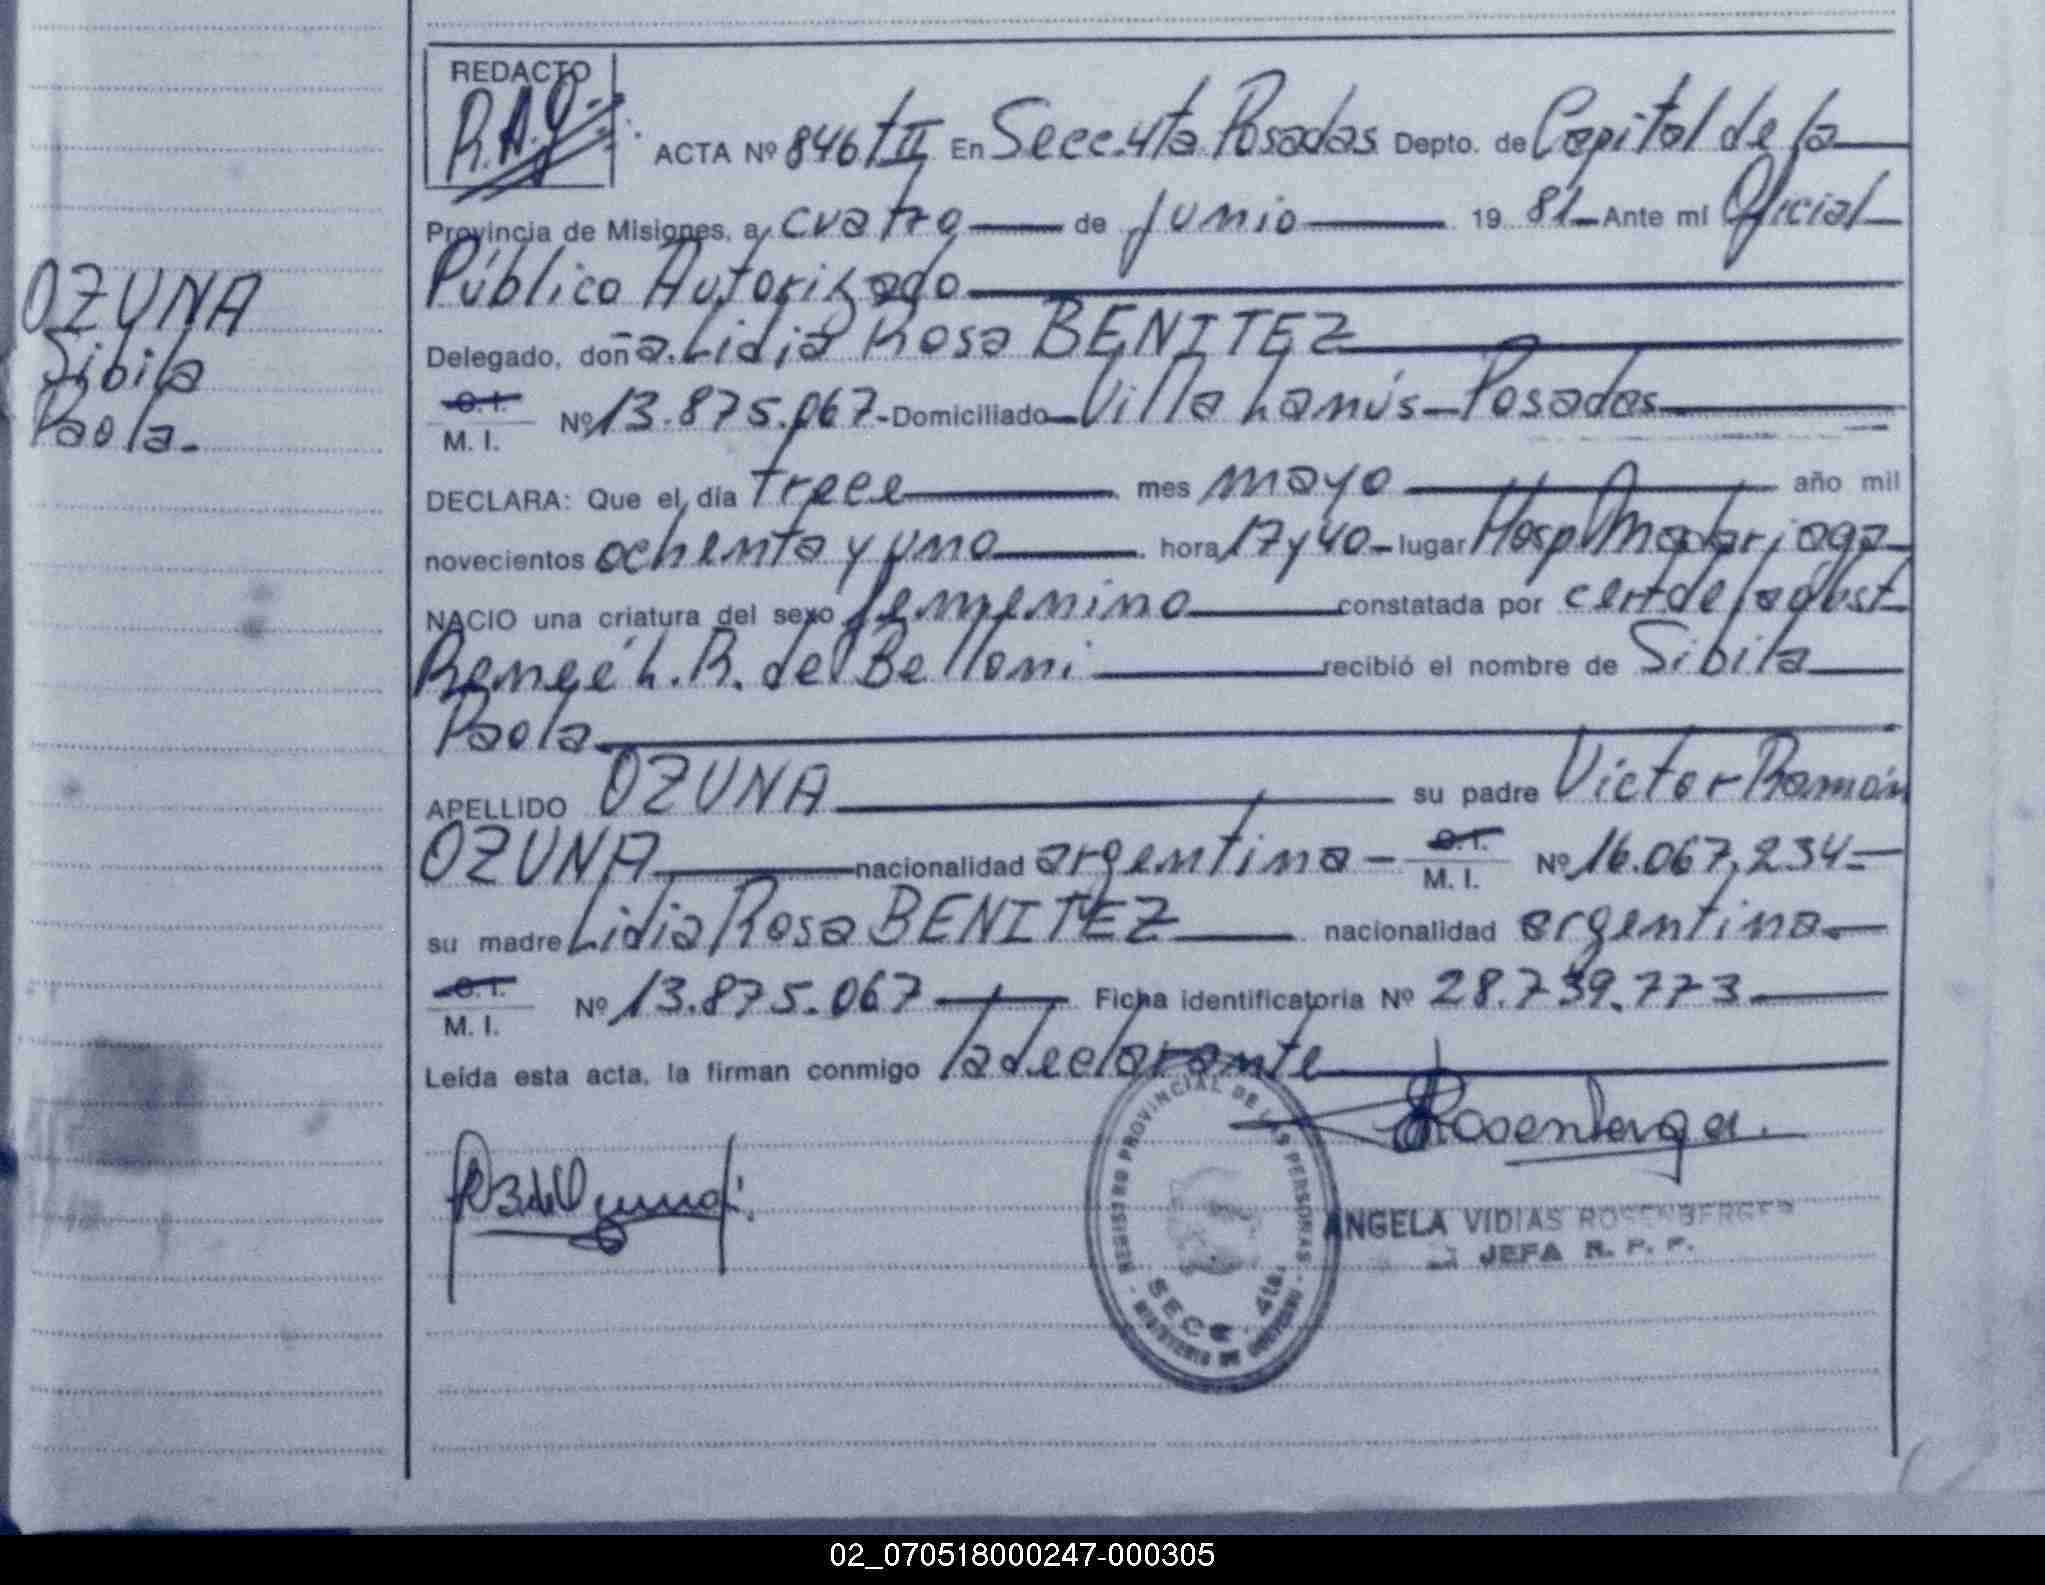 REDACTO
R.A.G.
ACTA Nº 846 tII En Secc. 4ta Posadas Depto. de Capital de la
Provincia de Misiones, a cuatro de junio 19 81 Ante mí Oficial
Público Autorizado
Delegado, doña. Lidia Rosa BENITEZ
C. I.
M. I. Nº 13.875.067 - Domiciliado Villa Lanús - Posadas
DECLARA: Que el día trece mes mayo año mil
novecientos ochenta y uno hora 17 y 40 - lugar Hosp. Madariaga
NACIO una criatura del sexo femenino constatada por cert de la obst
Reneé L. R. de Belloni recibió el nombre de Sibila
Paola
APELLIDO OZUNA su padre Victor Ramón
OZUNA nacionalidad argentina - C. I.
M. I. Nº 16.067.234 -
su madre Lidia Rosa BENITEZ nacionalidad argentina
C. I.
M. I. Nº 13.875.067 Ficha identificatoria Nº 28.739.773
Leída esta acta, la firman conmigo la declarante
OZUNA
Sibila
Paola
Rosenberger
REGISTRO PROVINCIAL DE LAS PERSONAS
SECC. 4ta.
MINISTERIO DE GOBIERNO
ANGELA VIDIAS ROSENBERGER
JEFA R. P. P.
02_070518000247-000305